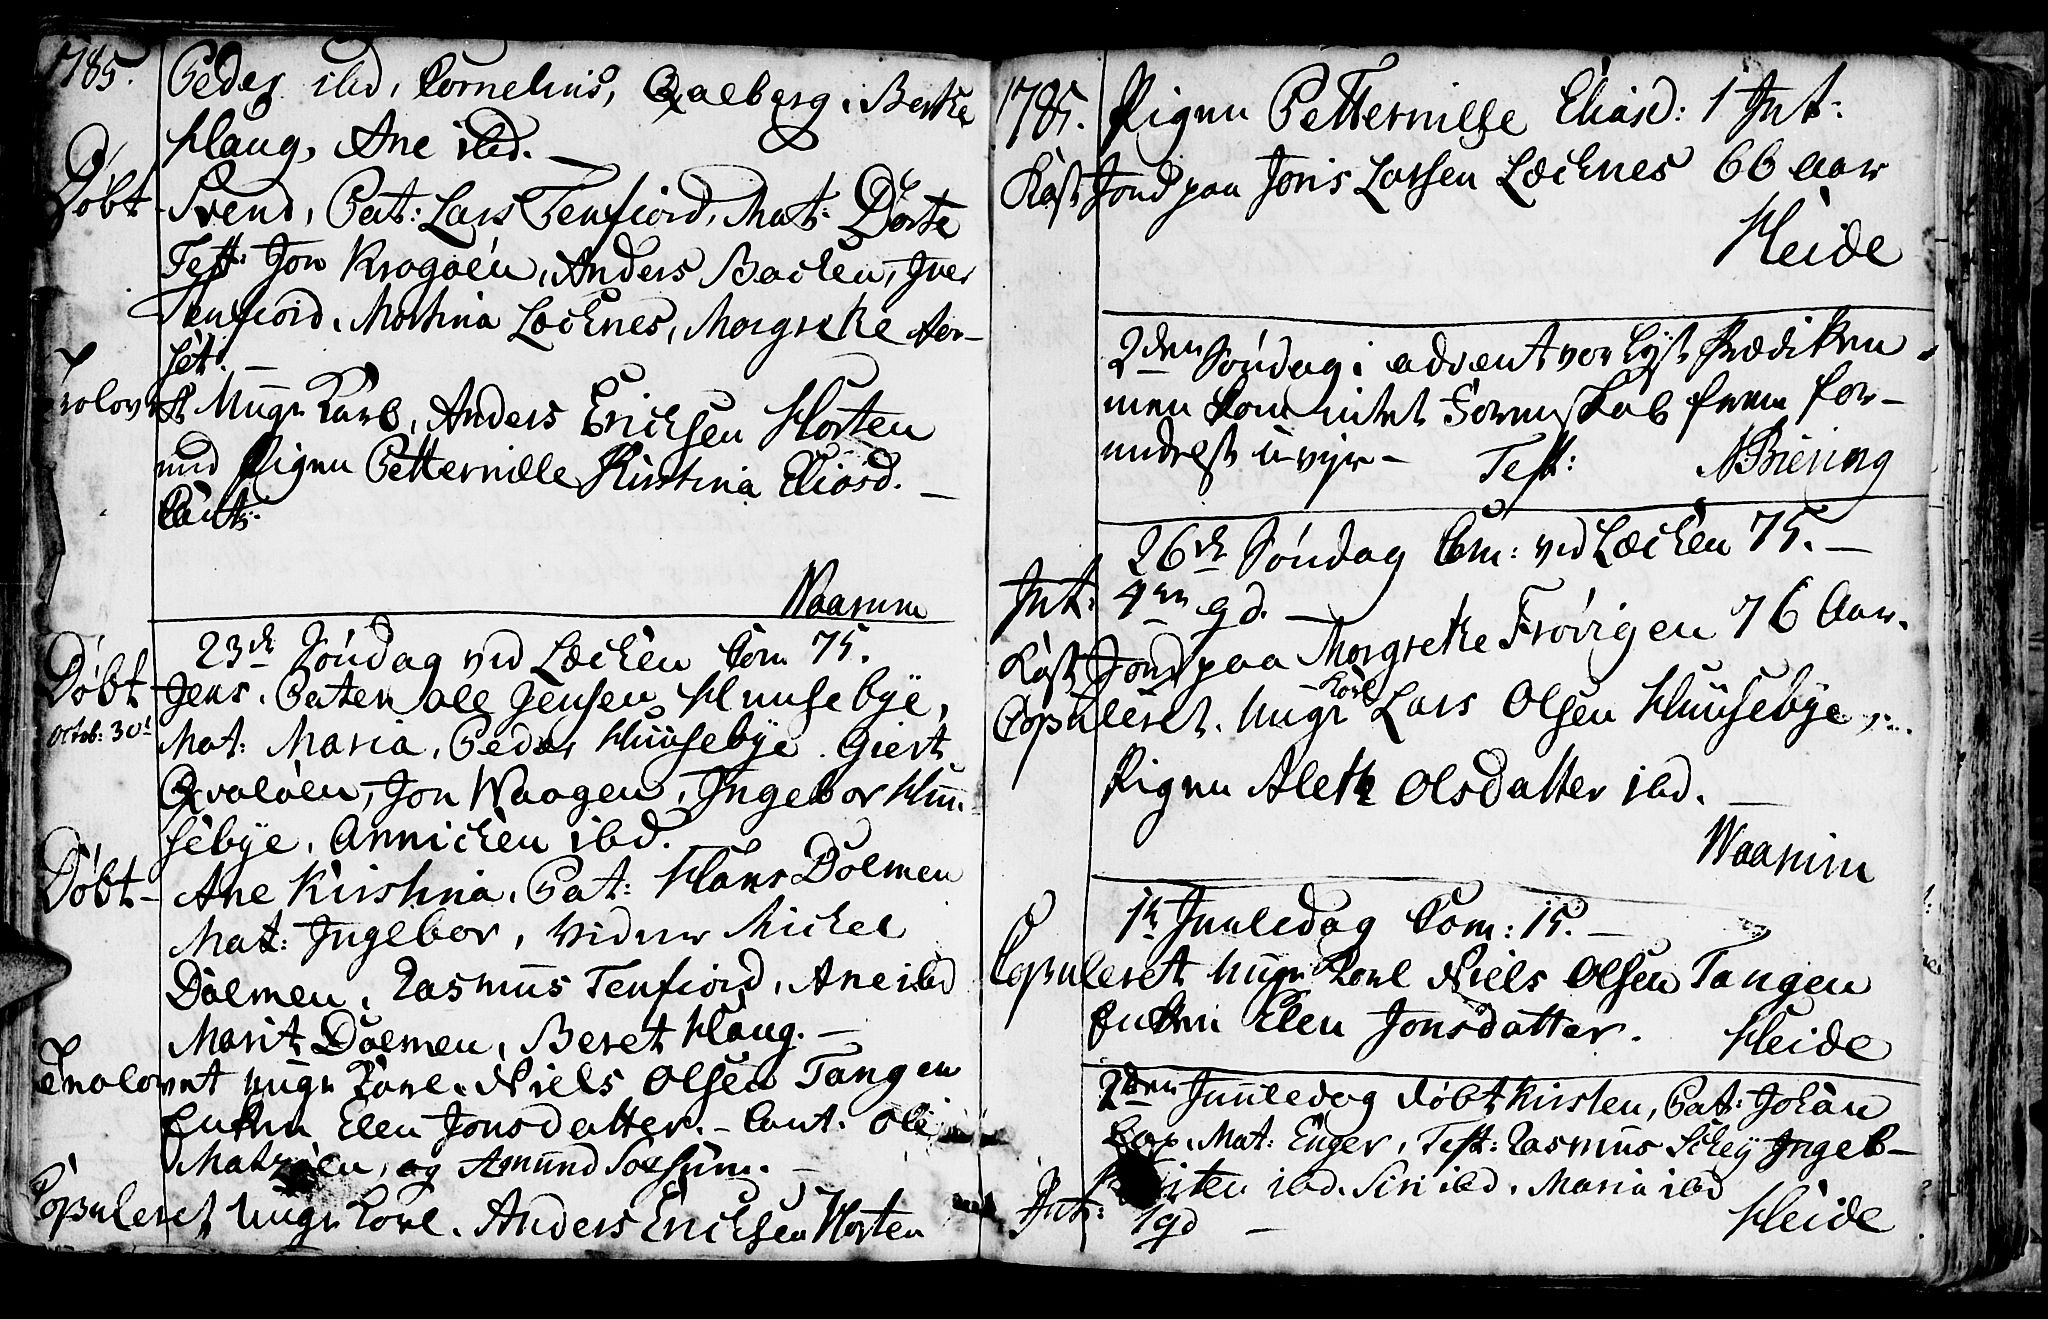 1785.
Peder ibd, Cornelius, Qvalberg, Berthe
Haug, Ane ibd. —
Døbt Svend, Pat: Lars Tenfiord, Mat: Dorte
Test: Jon Kragøen, Anders Backen, Iver
Tenfiord, Martina Læcknes, Margrethe Aar-
set. —
Trolovet Ungr Karl, Anders Erichsen Horten
med Pigen Petternille Kirstina Eliasd. —
Caut:
Waarum
23de Søndag ved Læcken Com 75.
Døbt Jens, Pater Ole Jensen Huusebye,
Octob: 30t Mat: Maria, Peder Huusebye Giert
Qvaløen, Jon Waagen, Ingebor Huu-
sebye, Annicken ibd.
Døbt— Ane Kirstina, Pat: Hans Dolmen
Mat: Ingebor, Vidner Michel
Dolmen, Rasmus Tenfiord, Ane ibd
Marit Dolmen, Beret Haug. —
Trolovet Ungr Karl, Niels Olsen Tangen
Enken Elen Jonsdatter. – Caut. Ole
og Amund
Copuleret Ungr Karl. Anders Erichsen Horten
1785. Pigen Petternille Eliasd: 1 Int:
Kast Jord paa Joris Larsen Læcknes 66 Aar
Heide
2den Søndag i advent var lyst Prædiken
men kom intet Formskab frem for-
medelst uvejr — Test: N Biering
26de Søndag Com: ved Læcken 75. —
Int: 4re qd. —
Kast Jord paa Margrethe Frøvigen 76 Aar.
Copuleret. Ungr Karl Lars Olsen Huusebye,
Pigen Aleth Olsdatter ibd. —
Waarum
1te Juuledag Com: 15. —
Copuleret Ungr Karl Niels Olsen Tangen
Enken Elen Jonsdatter. Heide
2den Juuledag døbt Kirsten, Pat: Johan
Mat: Enger, Test: Rasmus Ingeb-
ibd. Siri ibd. Maria ibd
Int: 1 qd — Heide